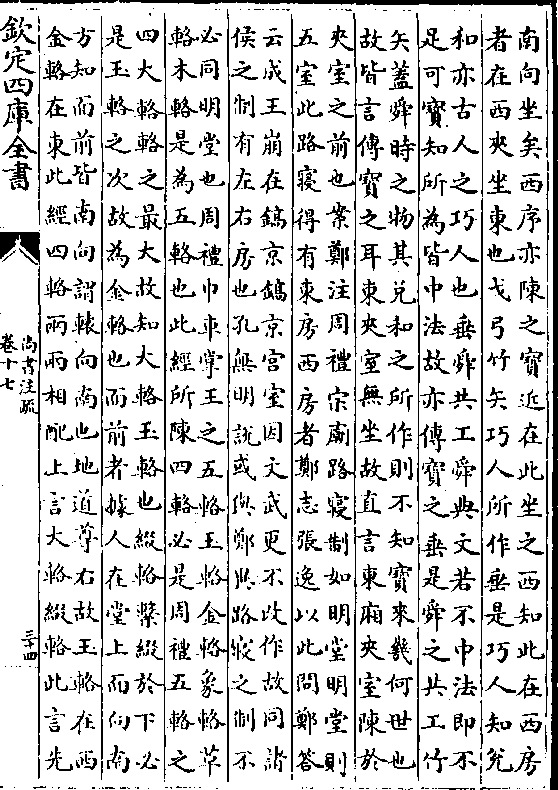 南向坐矣西序亦陳之寶近在此坐之西知此在西房
者在西夾坐東也戈弓竹矢巧人所作垂是巧人知兊
和亦古人之巧人也垂舜共工舜典文若不中法即不
足可寶知所為皆中法故亦傳寶之垂是舜之共工竹
矢蓋舜時之物其兊和之所作則不知寶來幾何世也
故皆言傳寶之耳東夾室無坐故直言東廂夾室陳於
夾室之前也案鄭注周禮宗廟路寢制如明堂明堂則
五室此路寢得有東房西房者鄭志張逸以此問鄭答
云成王崩在鎬京鎬京宮室因文武更不改作故同諸
侯之制有左右房也孔無明説或與鄭異路寢之制不
必同明堂也周禮巾車掌王之五輅玉輅金輅象輅革
輅木輅是為五輅也此經所陳四輅必是周禮五輅之
四大輅輅之最大故知大輅玉輅也綴輅繫綴於下必
是玉輅之次故為金輅也面前者據人在堂上面向南
方知面前皆南向謂轅向南也地道尊右故玉輅在西
金輅在東此經四輅兩兩相配上言大輅綴輅此言先
欽定四庫全書
尚書注疏
卷十七
三十四